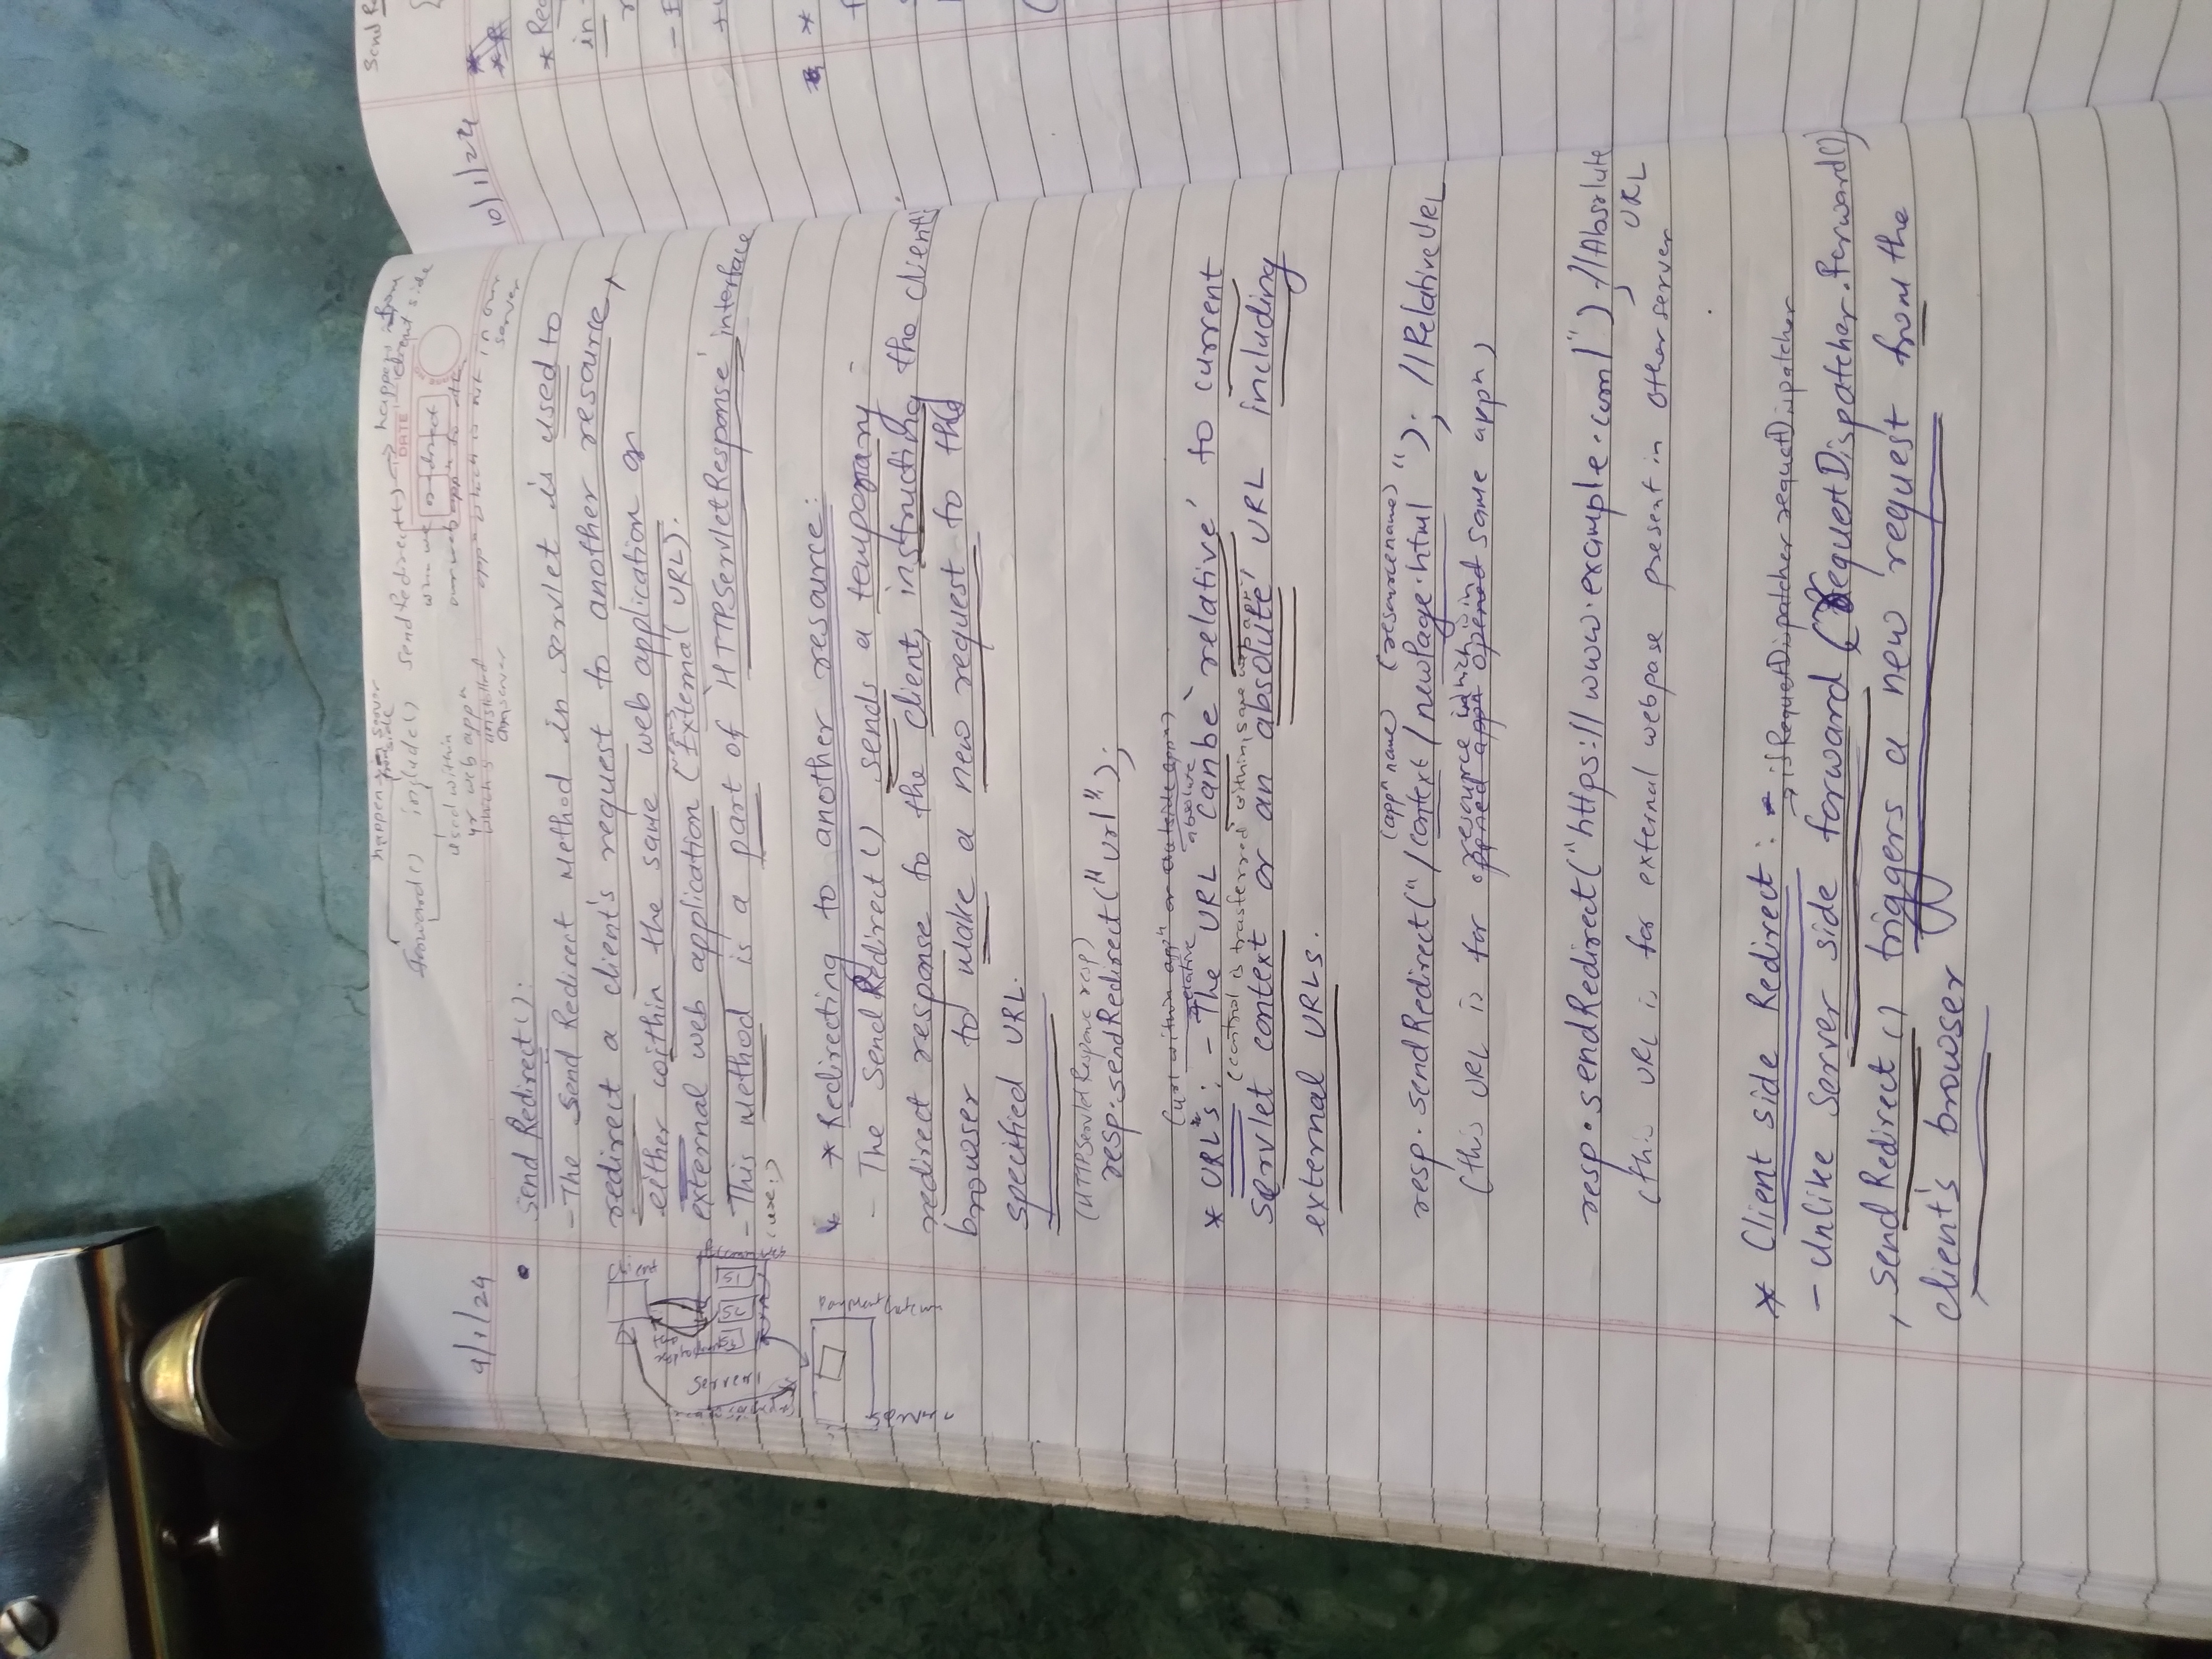 happens in server
from side
forward() include() sendRedirect() → happens from
client side
DATE
used within
yr web appⁿ
which is installed
on server
when we redirect
our web appⁿ to other
appⁿ which is not in our
server
9/1/24
• Send Redirect():
- The Send Redirect method in servlet is used to
redirect a client's request to another resource,
either within the same web application or
external web application (External URL).
- This method is a part of 'HTTPServletResponse' interface
(use:)
* Redirecting to another resource:
- The Send Redirect() sends a temporary
redirect response to the client, instructing the client's
browser to make a new request to the
specified URL.
(HTTPServletResponse resp)
resp.sendRedirect("url");
(url within appⁿ or outside appⁿ)
relative absolute
* URL's: - The URL can be 'relative' to current
(control is trasferred within, same web appⁿ)
servlet context or an 'absolute' URL including
external URLs.
(appⁿ name) (resourcename)
resp.sendRedirect("/context/newPage.html"); //RelativeURL
resource which is in
(this URL is for opened appⁿ opened same appⁿ)
resp.sendRedirect("https://www.example.com/"); //Absolute
URL
(this URL is for external webpase present in other server
* Client side Redirect: → if RequetDispatcher requetDispatcher
- Unlike Server side forward (RequestDispatcher.forward()
, Send Redirect() triggers a new request from the
client's browser
Client
S1
S2
Server 1
Server 2
10/1/24
Send Re
* Rec
in